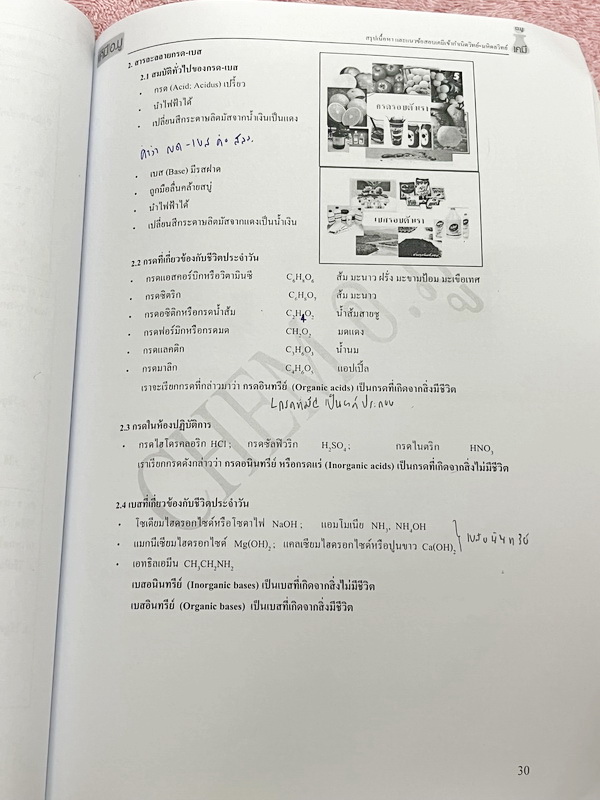 เคมี อ.อู๋
สรุปเนื้อหา และแนวข้อสอบเคมีเข้ากำเนิดวิทย์-มหิดลวิทย์
เคมี
2. สารละลายกรด-เบส
2.1 สมบัติทั่วไปของกรด-เบส
· กรด (Acid: Acidus) เปรี้ยว
· นำไฟฟ้าได้
· เปลี่ยนสีกระดาษลิตมัสจากน้ำเงินเป็นแดง
กรดรอบตัวเรา
· เบส (Base) มีรสฝาด
· ถูกมือลื่นคล้ายสบู่
· นำไฟฟ้าได้
· เปลี่ยนสีกระดาษลิตมัสจากแดงเป็นน้ำเงิน
เบสรอบตัวเรา
2.2 กรดที่เกี่ยวข้องกับชีวิตประจำวัน
· กรดแอสคอร์บิกหรือวิตามินซี C₆H₈O₆ ส้ม มะนาว ฝรั่ง มะขามป้อม มะเขือเทศ
· กรดซิตริก ส้ม มะนาว
· กรดอซิติกหรือกรดน้ำส้ม C₂H₄O₂ น้ำส้มสายชู
· กรดฟอร์มิกหรือกรดมด CH₂O₂ มดแดง
· กรดแลคติก C₃H₆O₃ น้ำนม
· กรดมาลิก C₄H₆O₅ แอปเปิ้ล
เราจะเรียกกรดที่กล่าวมาว่า กรดอินทรีย์ (Organic acids) เป็นกรดที่เกิดจากสิ่งมีชีวิต
เป็นองค์ประกอบ
2.3 กรดในห้องปฏิบัติการ
· กรดไฮโดรคลอริก HCl ; กรดซัลฟิวริก H₂SO₄ ; กรดไนตริก HNO₃
เราเรียกกรดดังกล่าวว่า กรดอนินทรีย์ หรือกรดแร่ (Inorganic acids) เป็นกรดที่เกิดจากสิ่งไม่มีชีวิต
2.4 เบสที่เกี่ยวข้องกับชีวิตประจำวัน
· โซเดียมไฮดรอกไซด์หรือโซดาไฟ NaOH ; แอมโมเนีย NH₃, NH₄OH
· แมกนีเซียมไฮดรอกไซด์ Mg(OH)₂ ; แคลเซียมไฮดรอกไซด์หรือปูนขาว Ca(OH)₂
เบสอนินทรีย์
· เอทธิลเอมีน CH₃CH₂NH₂
เบสอนินทรีย์ (Inorganic bases) เป็นเบสที่เกิดจากสิ่งไม่มีชีวิต
เบสอินทรีย์ (Organic bases) เป็นเบสที่เกิดจากสิ่งมีชีวิต
CHEM อ.อู๋
30